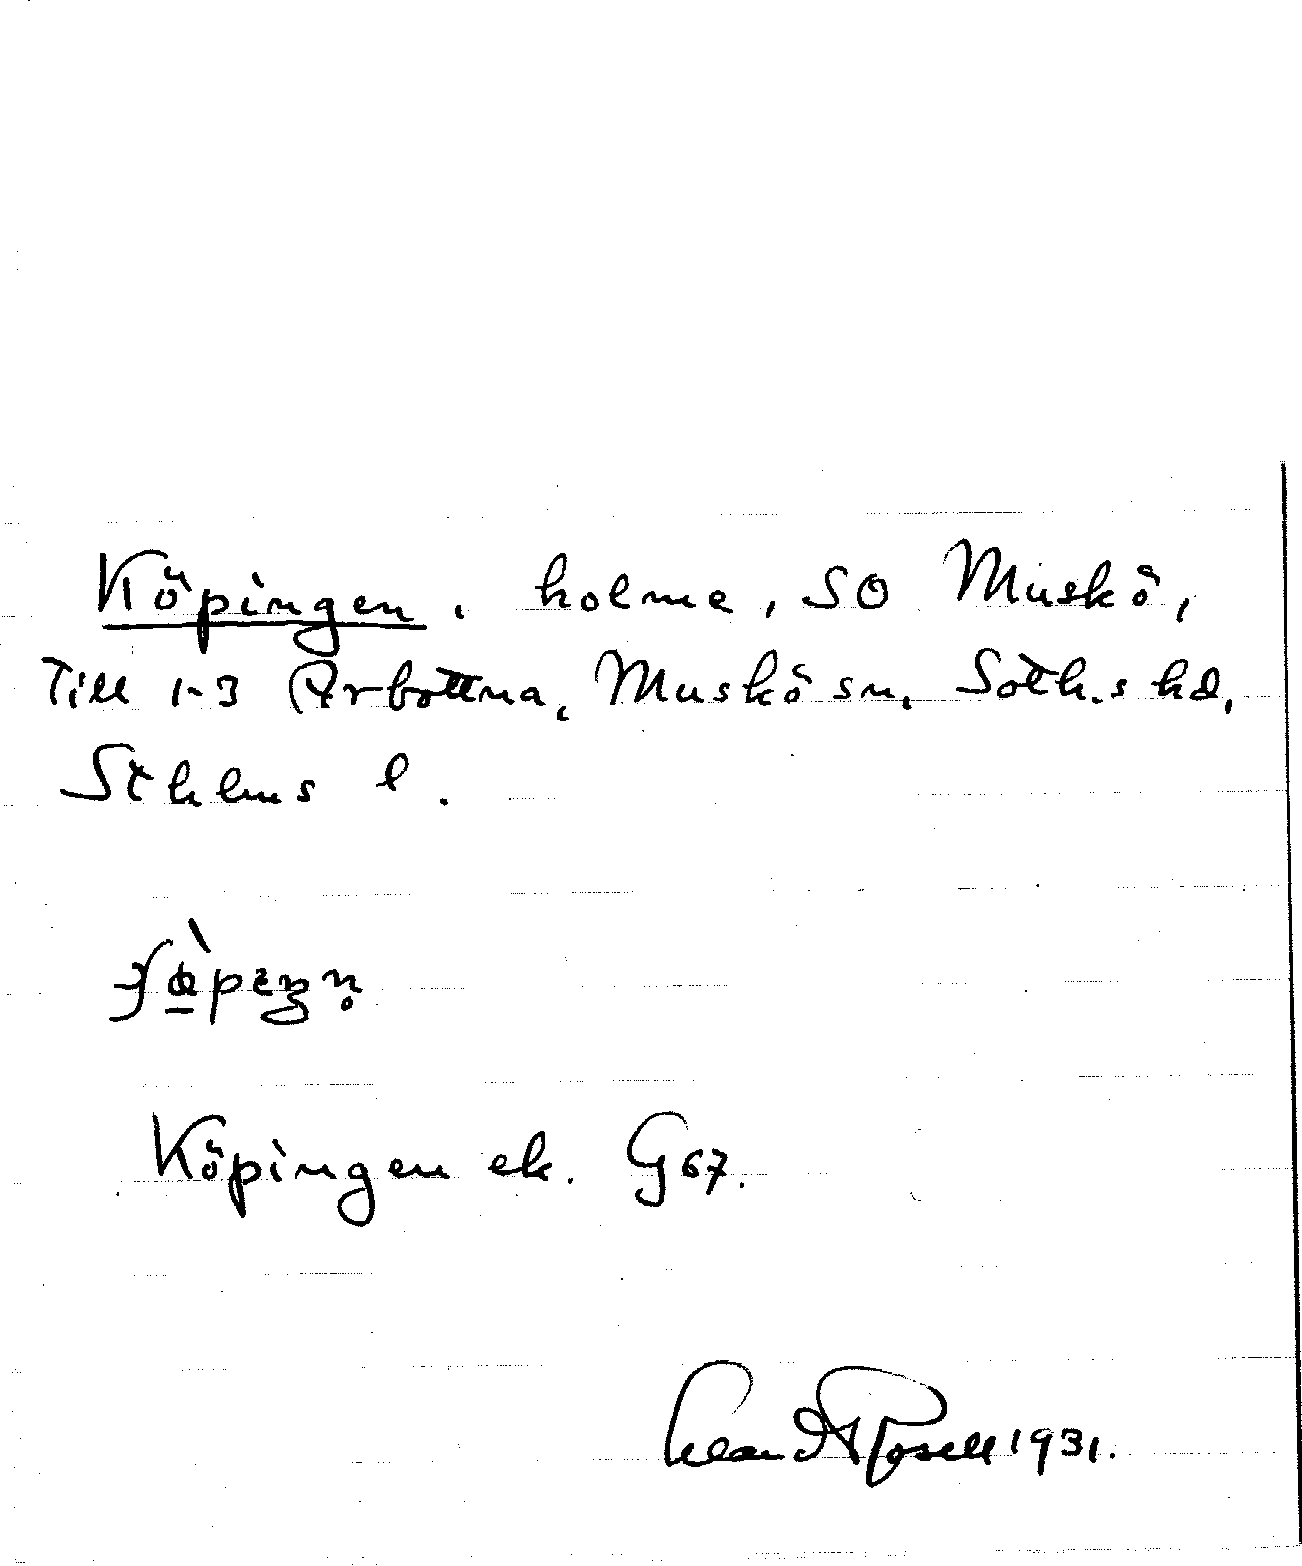 Köpingen, holme, SO Muskö,
Till 1-3 Arbottna, Muskö sn, Soth.s hd,
Sthlms l.
Köpingen ek. G 67.
Rosell 1931.